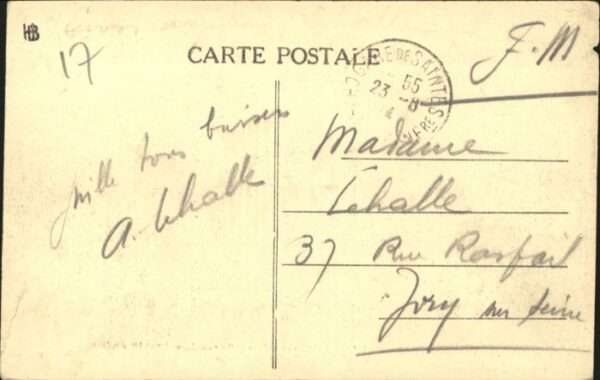 HB
17
CARTE POSTALE
F. M
GARE DE SAINTES
55
23 - 8
Mille bons baisers
A. Lehalle
Madame
Lehalle
37 Rue Raspail
Ivry sur Seine